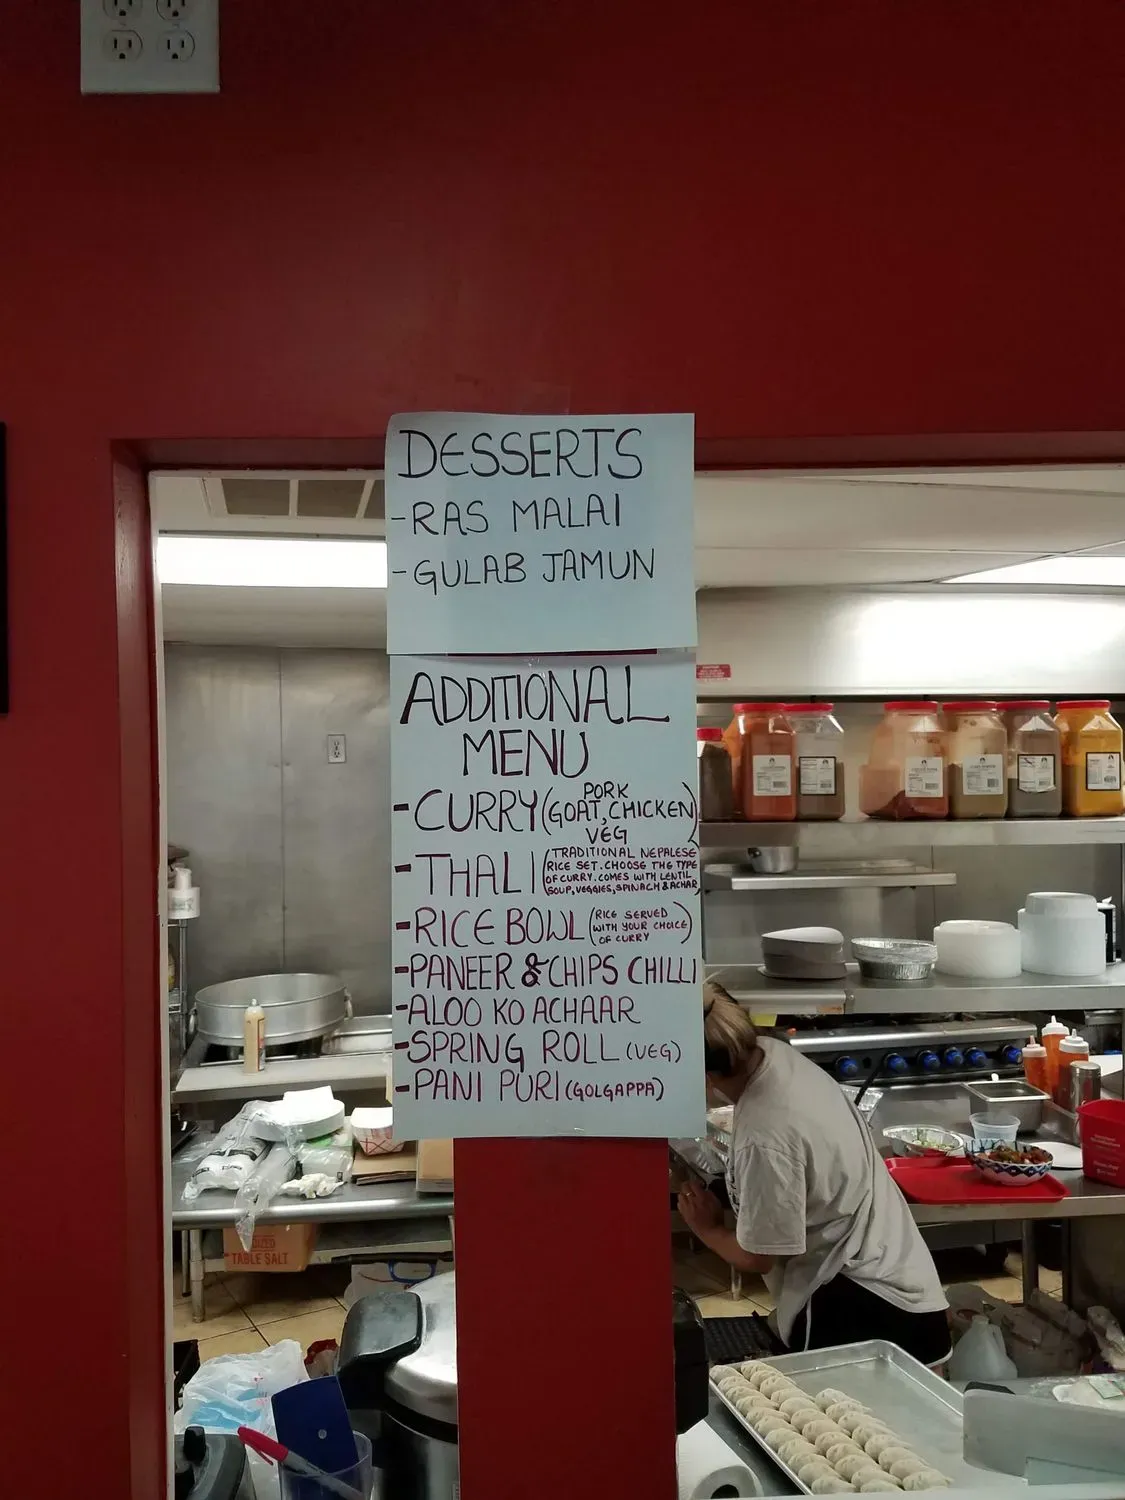 DESSERTS
-RAS MALAI
-GULAB JAMUN
ADDITIONAL
MENU
-CURRY (GOAT, CHICKEN PORK VEG)
-THALI (TRADITIONAL NEPALESE
RICE SET. CHOOSE THE TYPE
OF CURRY. COMES WITH LENTIL
SOUP, VEGGIES, SPINACH & ACHAR)
-RICE BOWL (RICE SERVED
WITH YOUR CHOICE
OF CURRY)
-PANEER & CHIPS CHILLI
-ALOO KO ACHAAR
-SPRING ROLL (VEG)
-PANI PURI (GOLGAPPA)
TABLE SALT